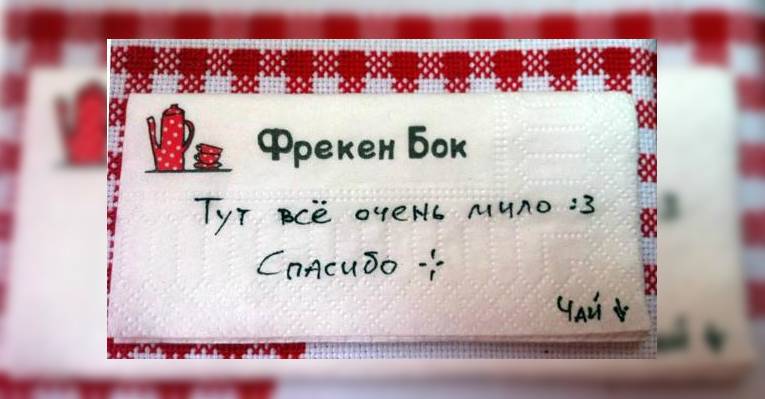 Фрекен Бок
Тут всё очень мило :3
Спасибо
Чай ↓